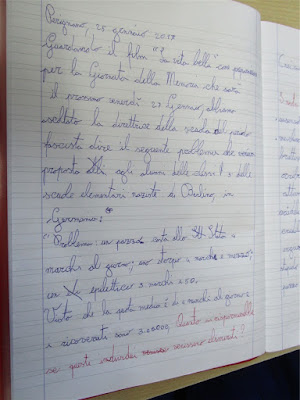 Perignano, 25 gennaio 2017
Guardando il film "La vita è bella"
per la Giornata della Memoria che sarà
il prossimo venerdì 27 Gennaio, abbiamo
ascoltato la direttrice della scuola del periodo
fascista dire il seguente problema che
proposto agli alunni delle classi 3ª delle
scuole elementari naziste di Berlino, in
Germania:
"Problema: un pazzo costa allo Stato 4
marchi al giorno; uno storpio 4 marchi e mezzo;
un epilettico 3 marchi e 50.
Visto che la quota media è di 4 marchi al giorno e
i ricoverati sono 300000, quanto si risparmierebbe
se questi individui venissero eliminati?